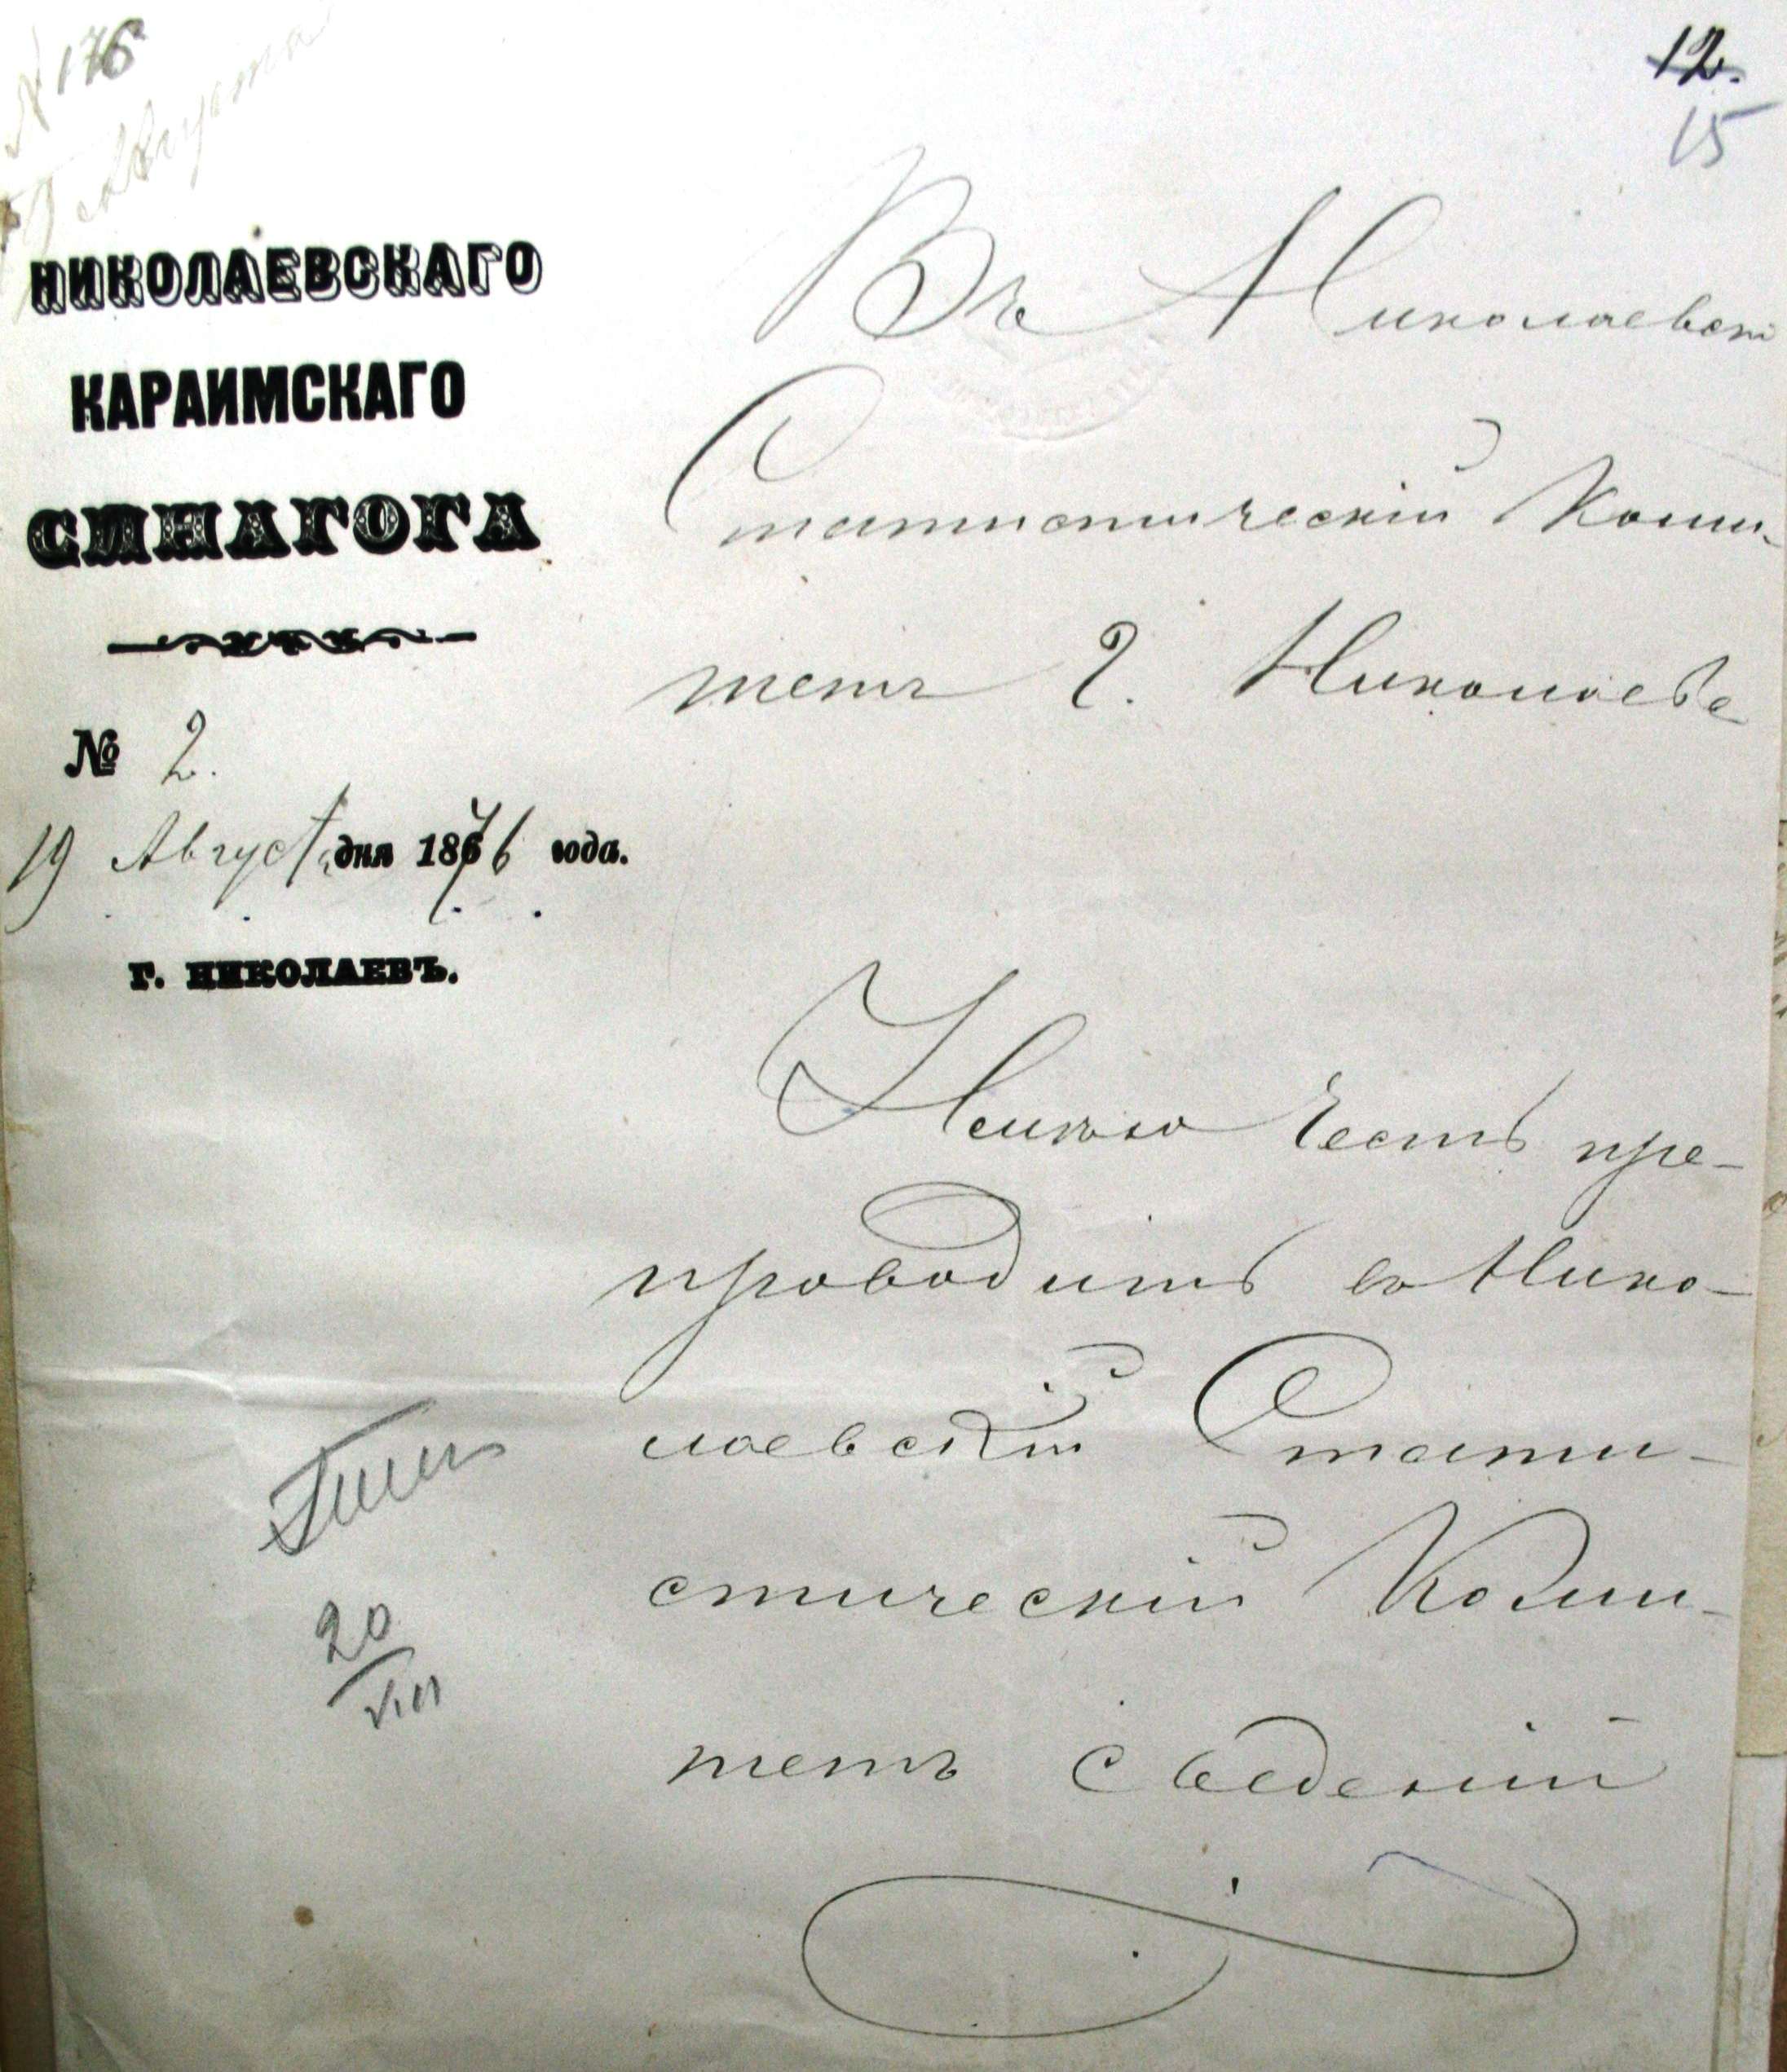 № 176
Августа
12.
15
НИКОЛАЕВСКАГО
КАРАИМСКАГО
СИНАГОГА
№ 2.
19 Августа дня 1876 года.
г. НИКОЛАЕВЪ.
Въ Николаевскій
Статистическій Коми-
тетъ г. Николаева
Имѣю честь пре-
проводить въ Нико-
лаевскій Стати-
стическій Коми-
тетъ сведеній
20
VIII